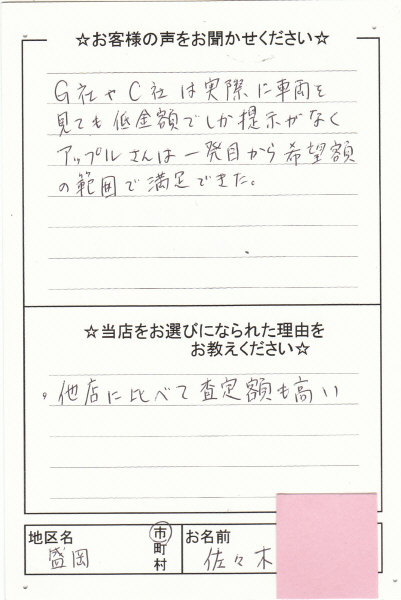 ☆お客様の声をお聞かせください☆
G社やC社は実際に車両を
見ても低金額でしか提示がなく
アップルさんは一発目から希望額
の範囲で満足できた。
☆当店をお選びになられた理由を
お教えください☆
・他店に比べて査定額も高い
地区名
盛岡
市
町
村
お名前
佐々木